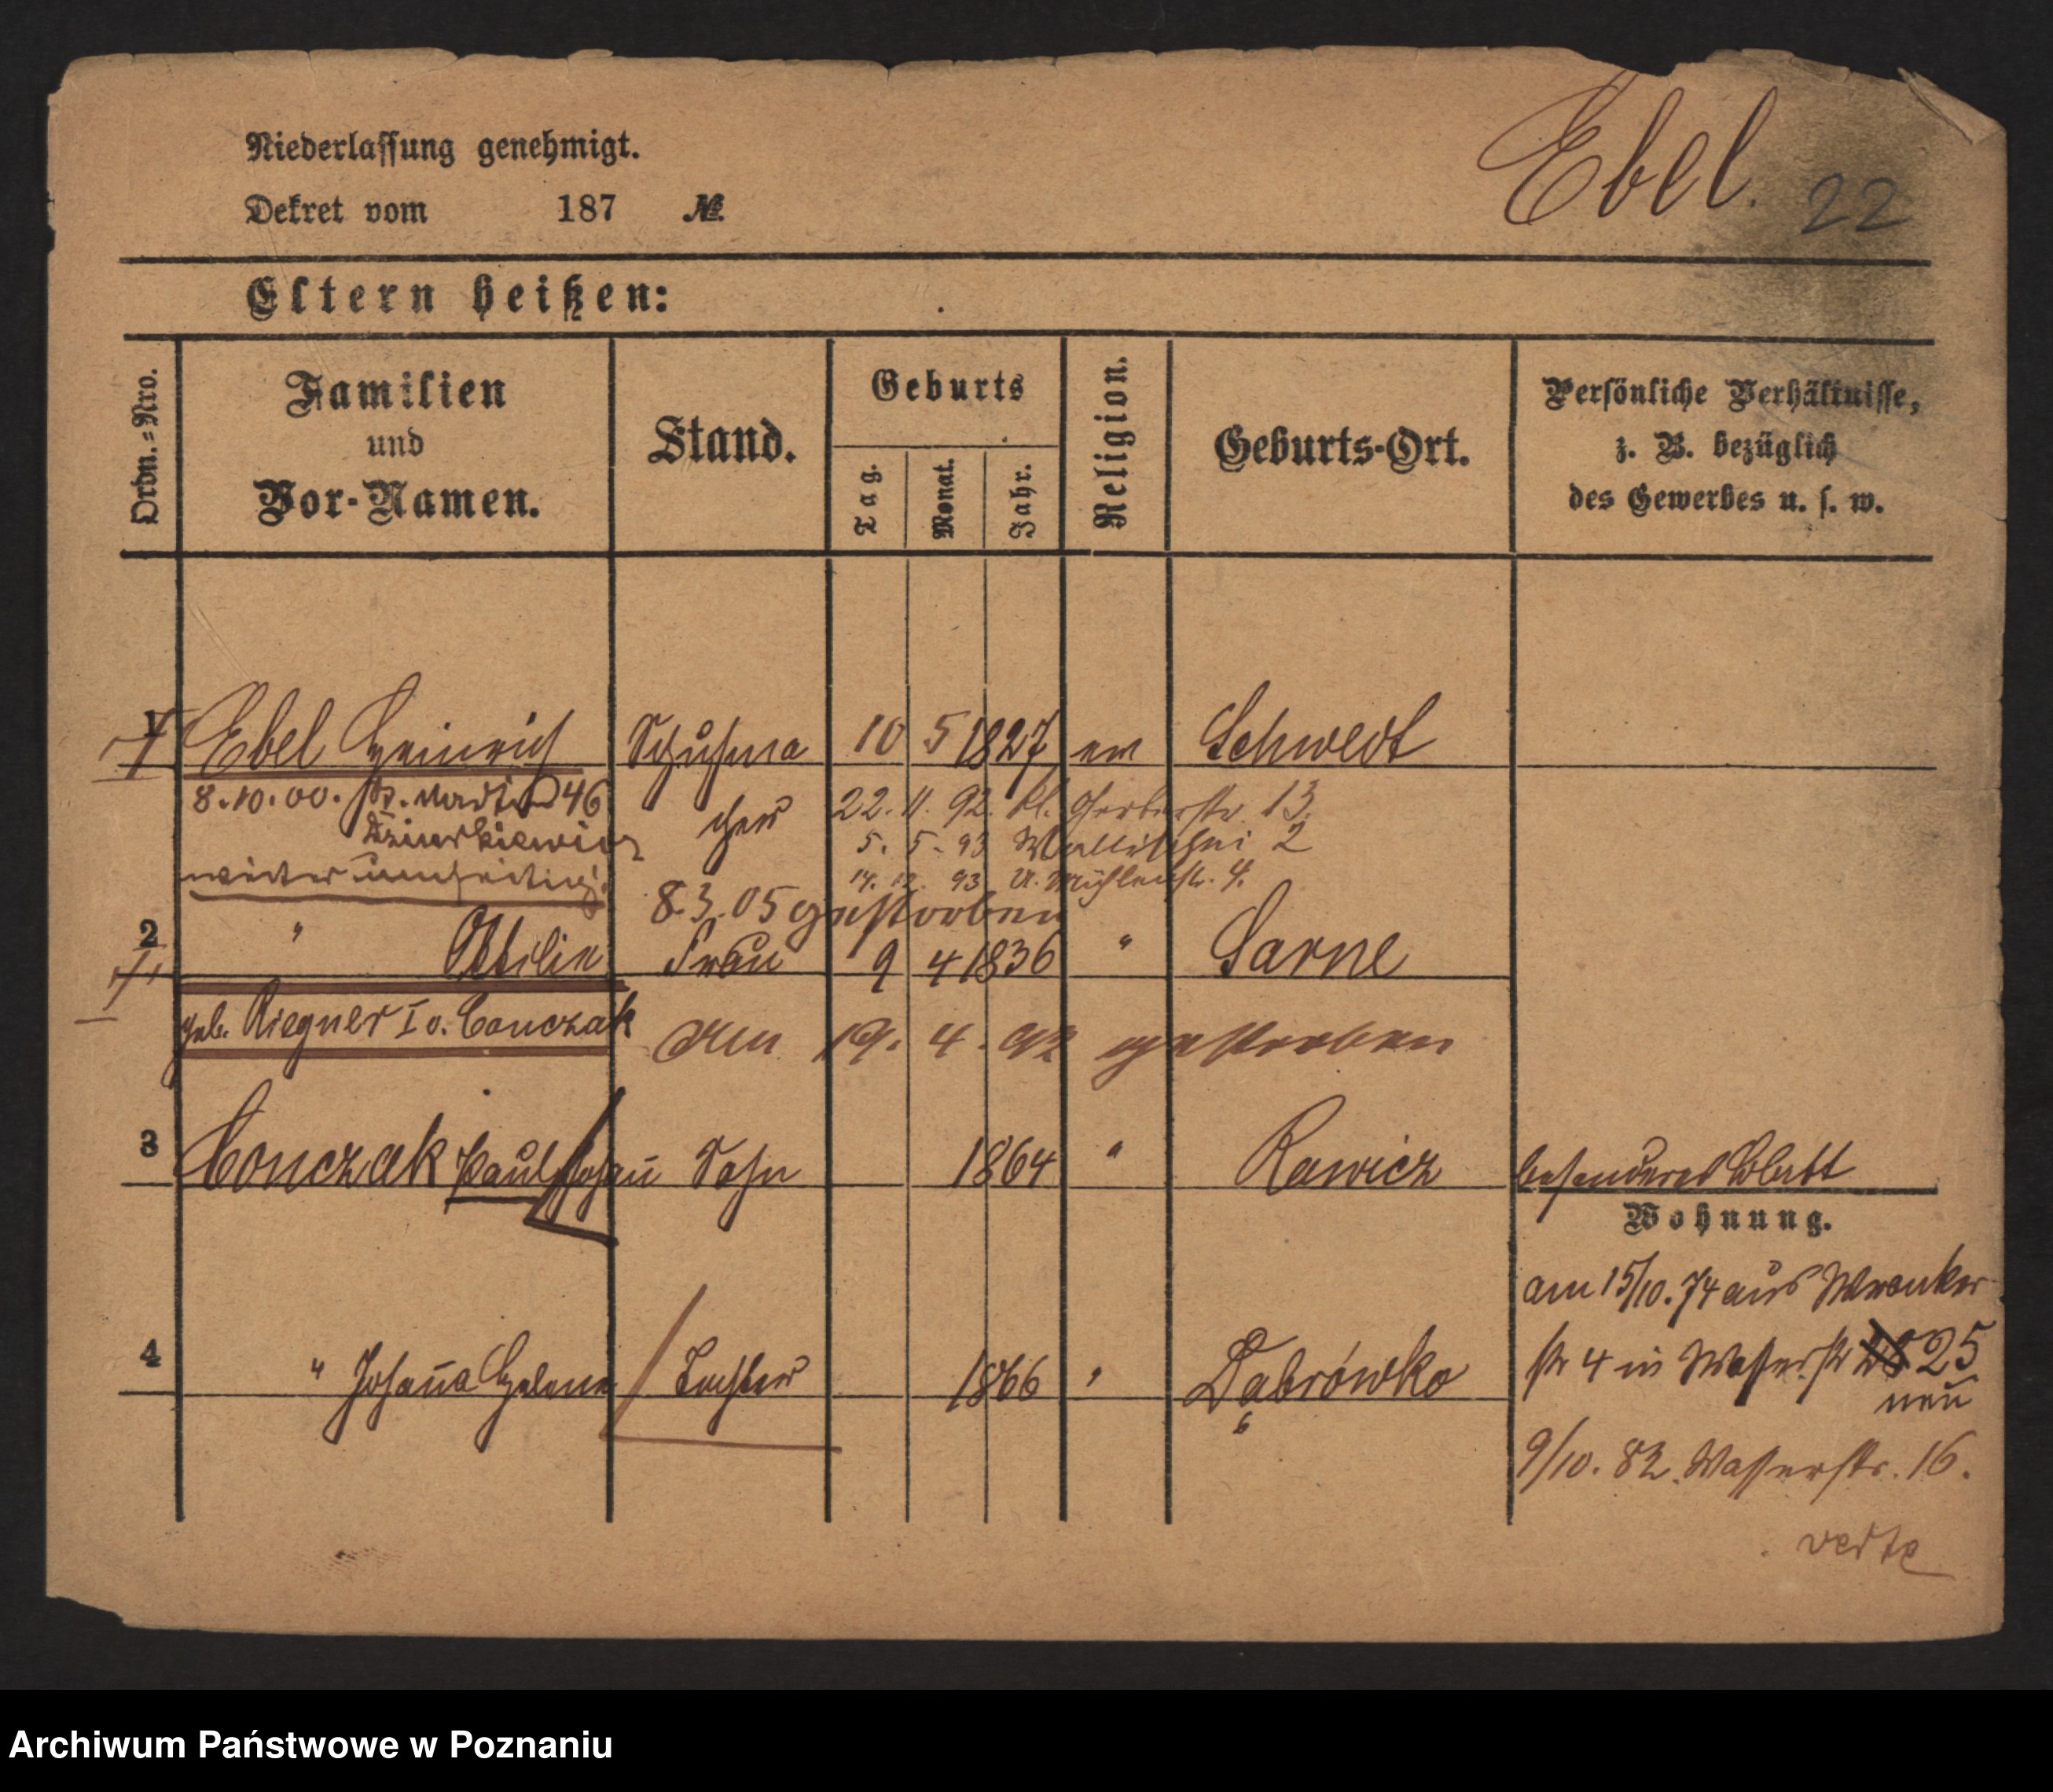 Niederlassung genehmigt.
Ebel. 22
Dekret vom 187 №
Eltern heißen:
Ordn.=Nro.
Familien
und
Vor-Namen.
Stand.
Geburts
Tag.
Monat.
Jahr.
Religion.
Geburts-Ort.
Persönliche Verhältnisse,
z. B. bezüglich
des Gewerbes u. s. w.
1 Ebel Heinrich Schuhma 10 5 1827 ev Schwedt
8.10.00. St. Martin 46 cher 22. 11. 92. Kl. Gerberstr. 13.
Dziurkiewicz 5. 5. 93 Wallischei 2
weiter umseitig. 14. 12. 93 U. Mühlenstr. 4.
8.3.05 gestorben
2 " Ottilie Frau 9 4 1836 " Sarne
geb. Riegner I v. Conczak
Am 19. 4. 92 gestorben
3 Conczak Paul Johann Sohn 1864 " Rawicz besonderes Blatt
Wohnung.
am 15/10. 74 aus Wronker
4 " Johanna Helene Tochter 1866 " Dąbrówko
str 4 in Wasserstr 25
neu
9/10. 82. Wasserstr. 16.
verte
Archiwum Państwowe w Poznaniu